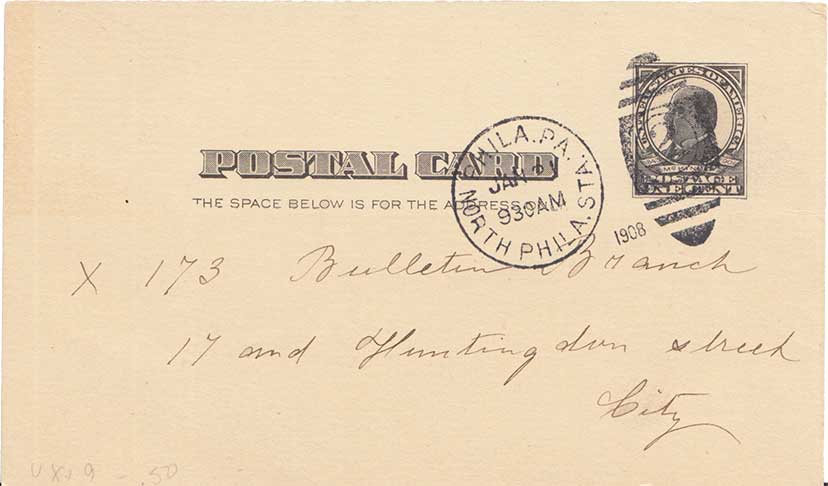 UNITED STATES OF AMERICA
McKINLEY
POSTAGE
ONE CENT
PHILA. PA.
JAN
930AM
NORTH PHILA. STA.
1908
POSTAL CARD
THE SPACE BELOW IS FOR THE ADDRESS ONLY.
X 173 Bulletin Branch
17 and Huntingdon street
City
UX19 - .50